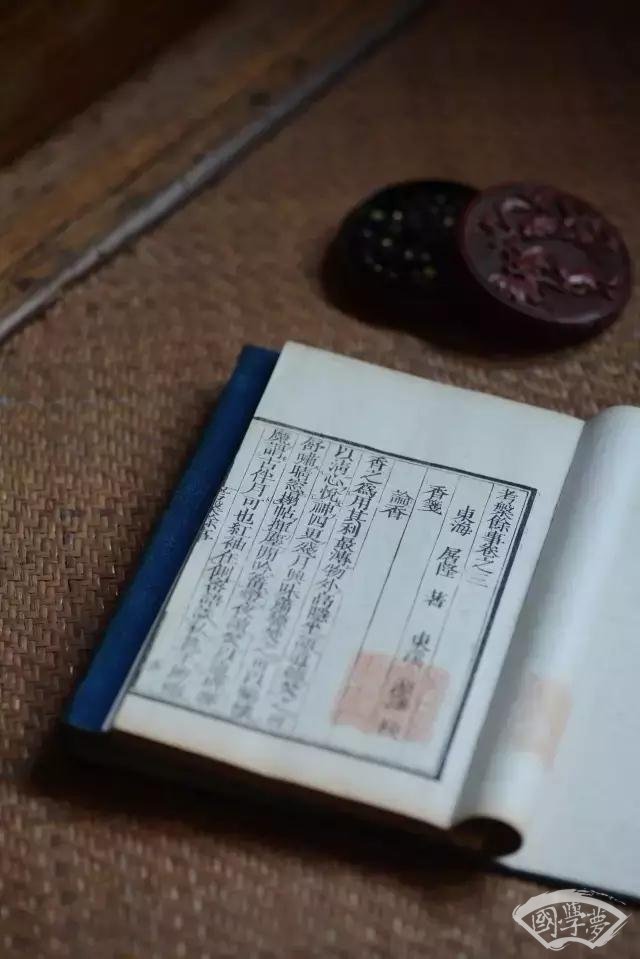 考槃餘事卷之三
東海 屠隆 著 東
香箋
論香
香之為用其利最溥物外高隱坐語道德焚之可
以清心悅神四更殘月興味蕭騷焚之可以暢懷
舒嘯晴窗搨帖揮麈閒吟篝燈夜讀焚以遠辟睡
魔謂古伴月可也紅袖在側密語談私執手
考槃餘事
國學夢